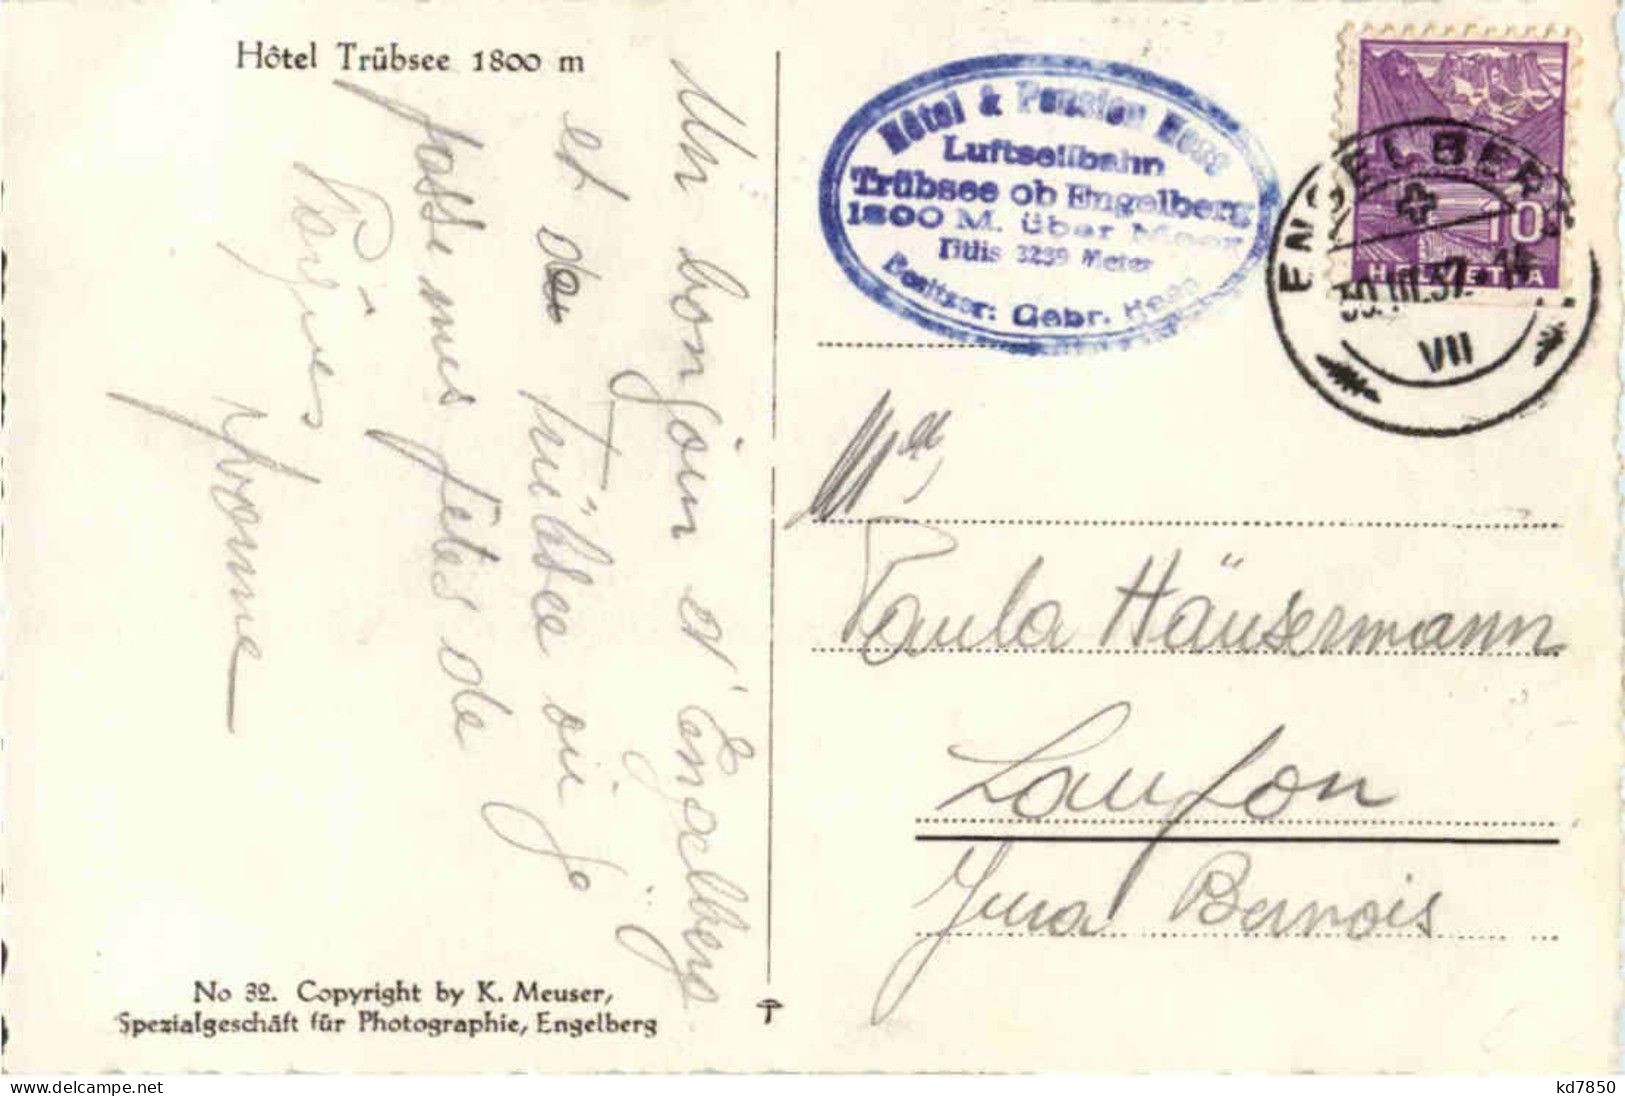 Hôtel Trübsee 1800 m
Un bonjour d'Engelberg
et de Trübsee où je
passe mes fêtes de
Pâques
Yvonne
No 32. Copyright by K. Meuser,
Spezialgeschäft für Photographie, Engelberg
Hôtel & Pension Hess
Luftseilbahn
Trübsee ob Engelberg
1800 M. über Meer
Titlis 3239 Meter
Besitzer: Gebr. Hess
ENGELBERG
10
HELVETIA
30.III.37.-14
VII
Mlle
Paula Häusermann
Laufon
Jura Bernois
kd7850